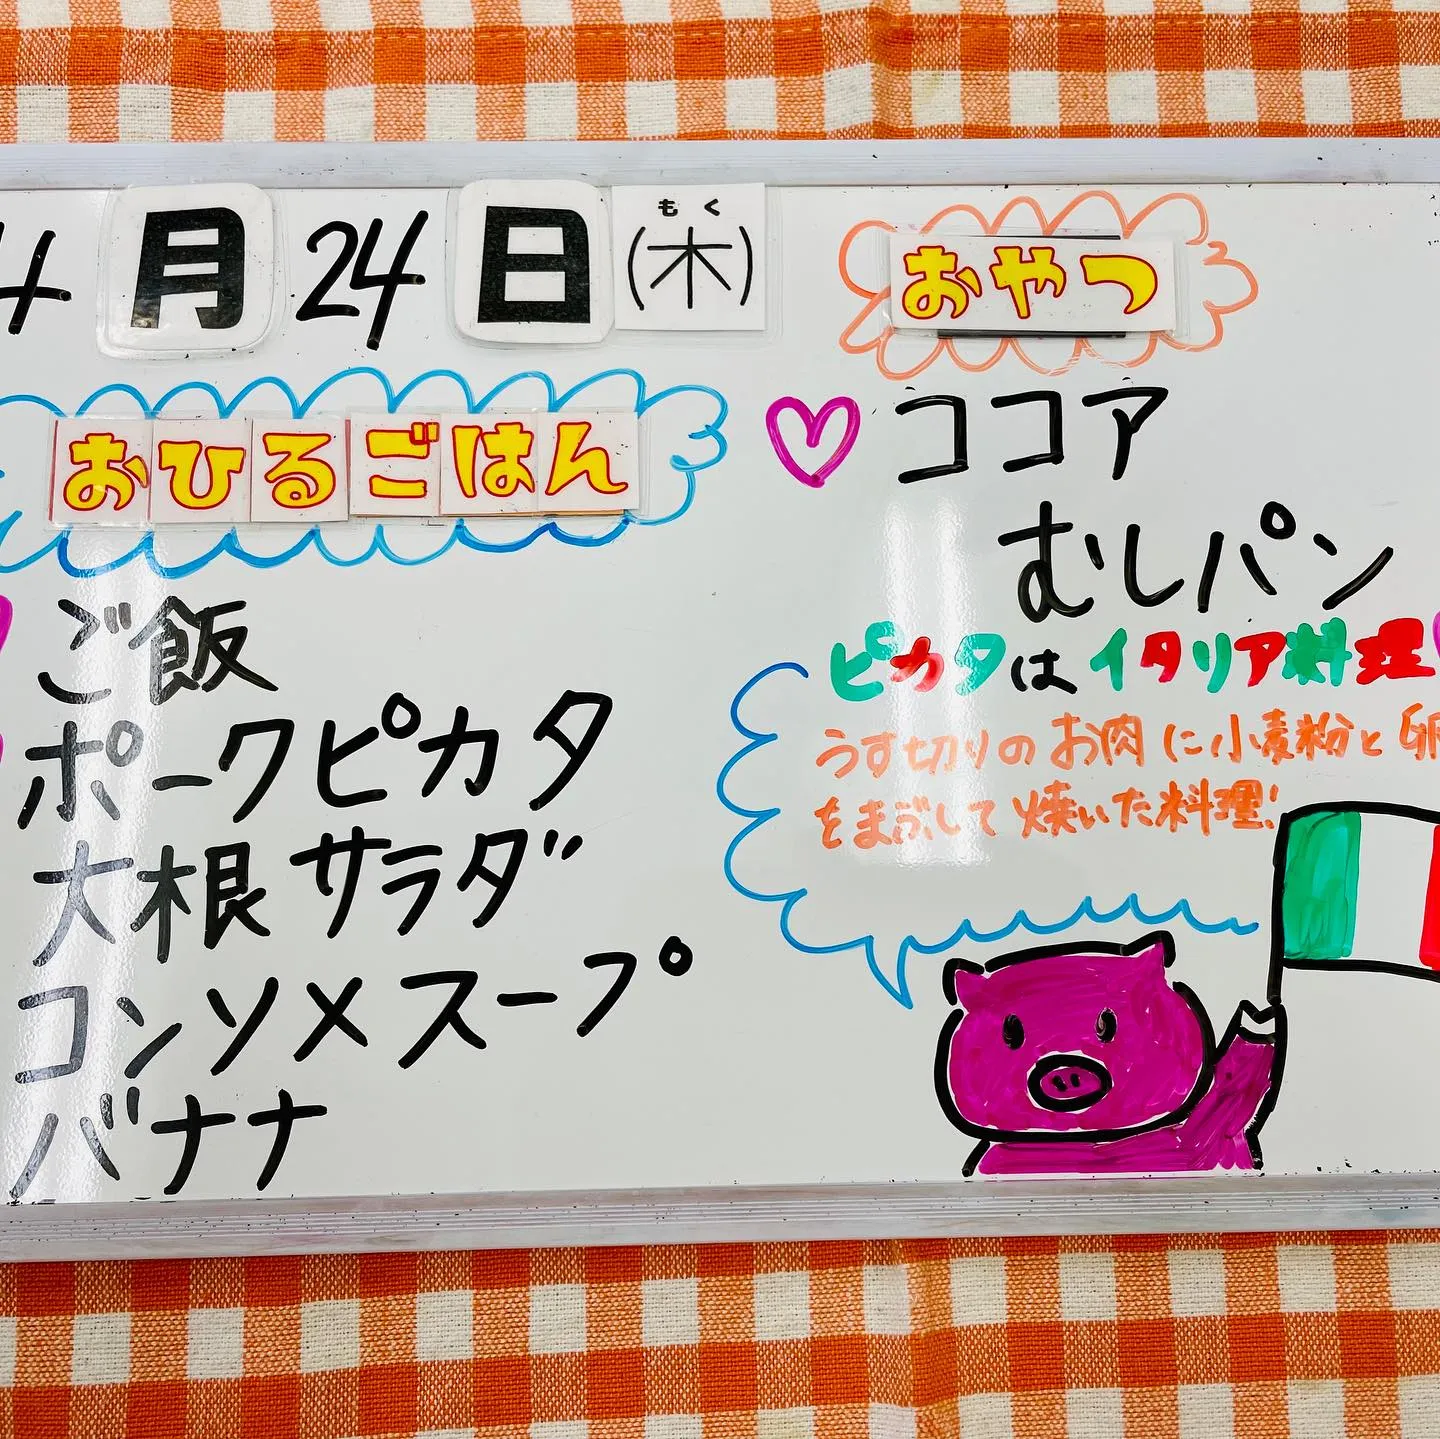 4月24日(木)
もく
おひるごはん
ご飯
ポークピカタ
大根サラダ
コンソメスープ
バナナ
おやつ
ココア
むしパン
ピカタはイタリア料理
うす切りのお肉に小麦粉と卵
をまぶして焼いた料理!